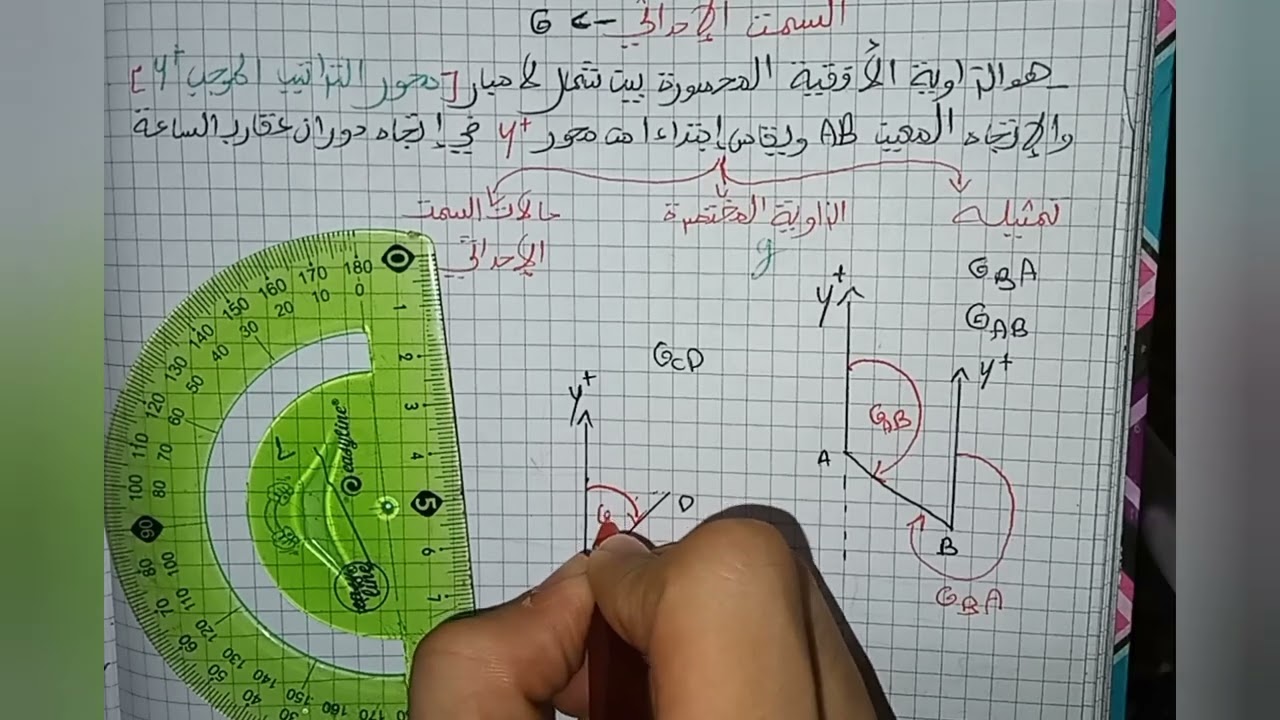 السمت الإحداثي -> G
_ هو الزاوية الأفقية المحصورة بين شمال لامبار [محور التراتيب الموجب y+]
والإتجاه المعين AB ويقاس إبتداءا من محور y+ في إتجاه دوران عقارب الساعة
تمثيله
الزاوية المختصرة
g
حالات السمت
الإحداثي
GBA
GAB
y+
GAB
A
y+
B
GBA
GCD
y+
G
D
0 1 2 3 4 5 6 7
180 170 160 150 140 130 120 110 100 90 80 70 60 50 40
0 10 20 30 40 50 60 70 80 90 100 110 120 130 140 150 160 170
easyline